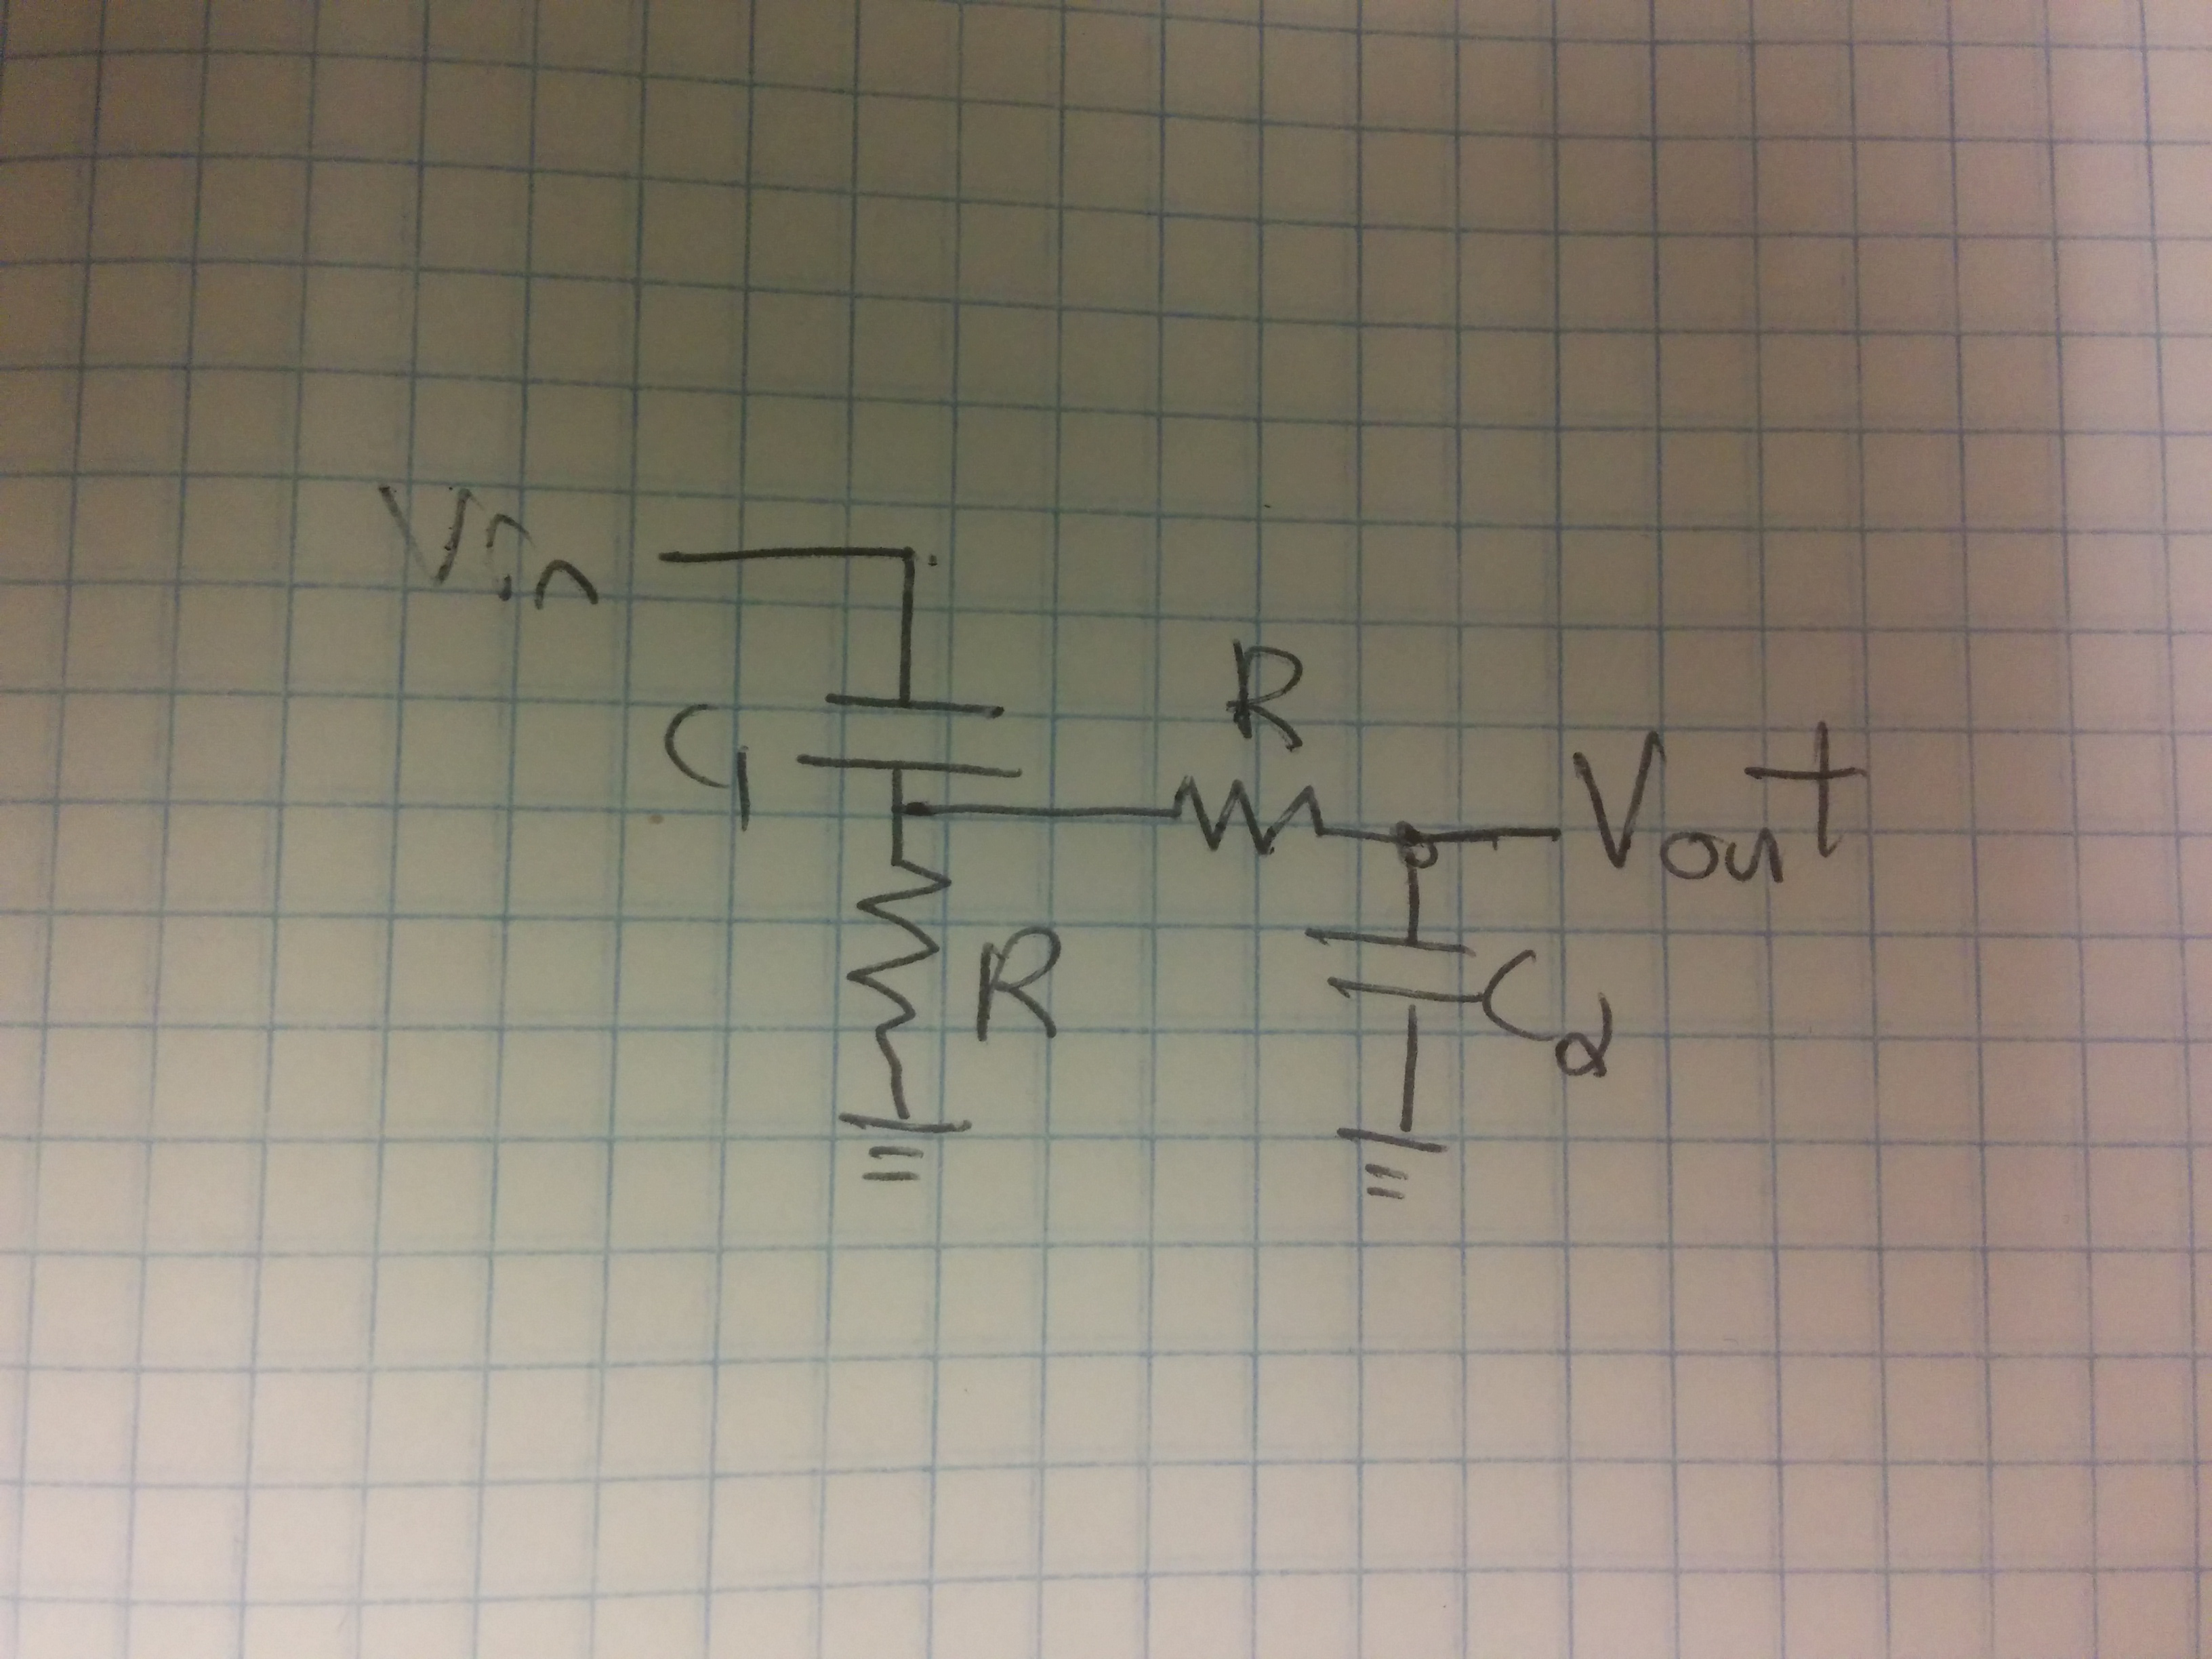 Vin
R
C1
Vout
R
C2